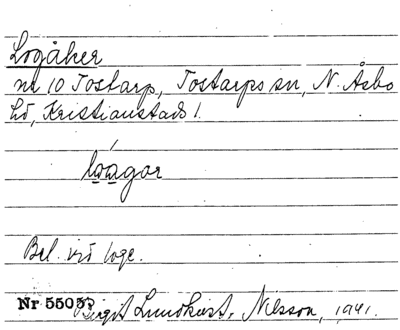 Logåker
nr 10 Tostarp, Tostarps sn, N. Åsbo
hd, Kristianstads l.
loågor
Bel. vid loge.
Nr 55059 Birgit Lundkvist, Nilsson, 1941.